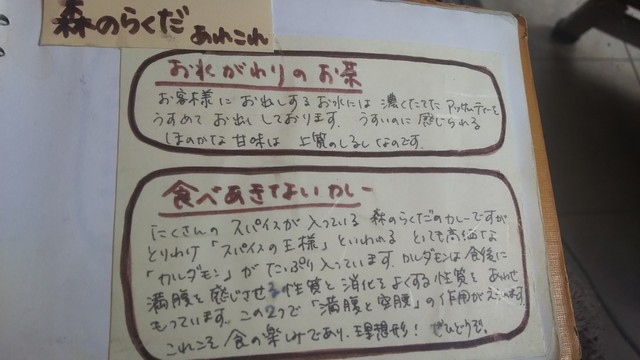 森のらくだ あれこれ
お水がわりのお茶
お客様にお出しするお水には 濃くたてた アッサムティーを
うすめて お出ししております。うすいのに 感じられる
ほのかな 甘味は 上質のしるしなのです。
食べあきないカレー
たくさんの スパイスが 入っている 森のらくだのカレーですが
とりわけ「スパイスの王様」といわれる とても高価な
「カルダモン」が たっぷり入っています。カルダモンは 食後に
満腹を感じさせる性質と 消化をよくする性質を あわせ
もっています。この2つで「満腹と空腹」の作用が
これこそ 食の楽しみであり、理想形! ぜひどうぞ。